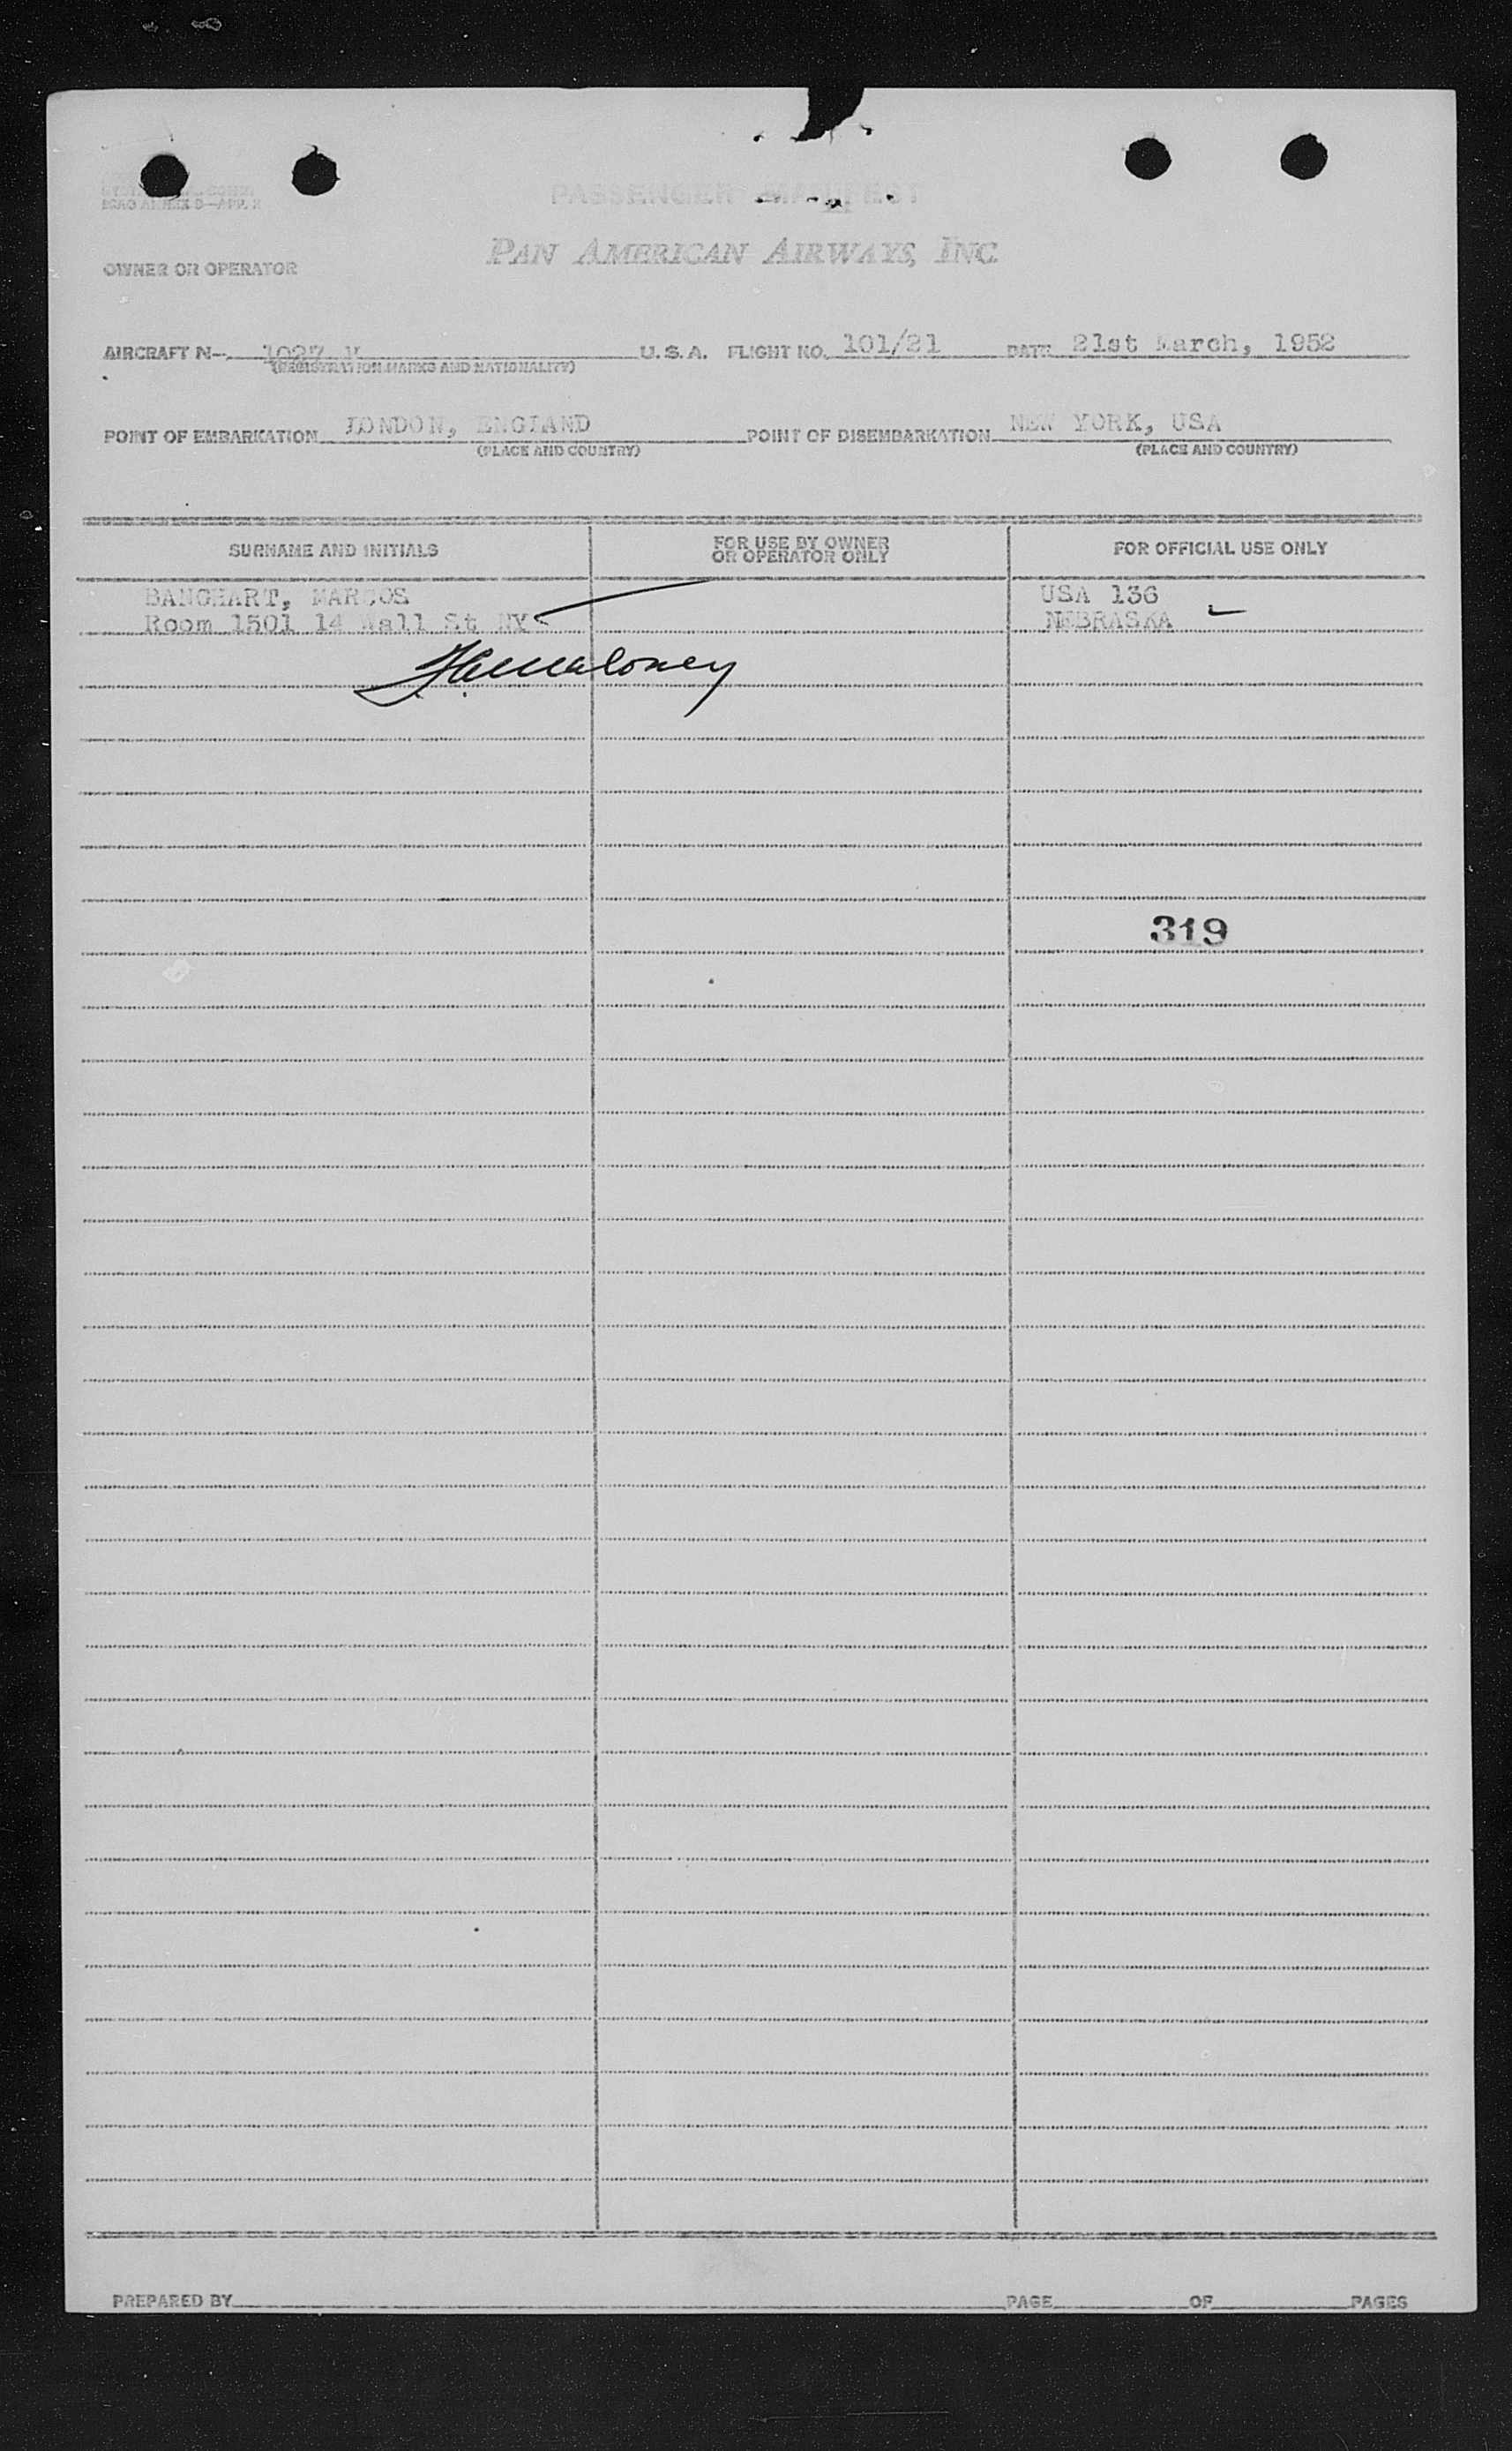 PASSENGER MANIFEST
PAN AMERICAN AIRWAYS, INC.
OWNER OR OPERATOR
AIRCRAFT N- 1027 V U.S.A. FLIGHT NO. 101/21 DATE 21st March, 1952
(REGISTRATION MARKS AND NATIONALITY)
POINT OF EMBARKATION LONDON, ENGLAND POINT OF DISEMBARKATION NEW YORK, USA
(PLACE AND COUNTRY) (PLACE AND COUNTRY)
SURNAME AND INITIALS FOR USE BY OWNER OR OPERATOR ONLY FOR OFFICIAL USE ONLY
BANGHART, MARCOS USA 136
Room 1501 14 Wall St NY NEBRASKA
Maloney
319
PREPARED BY PAGE OF PAGES